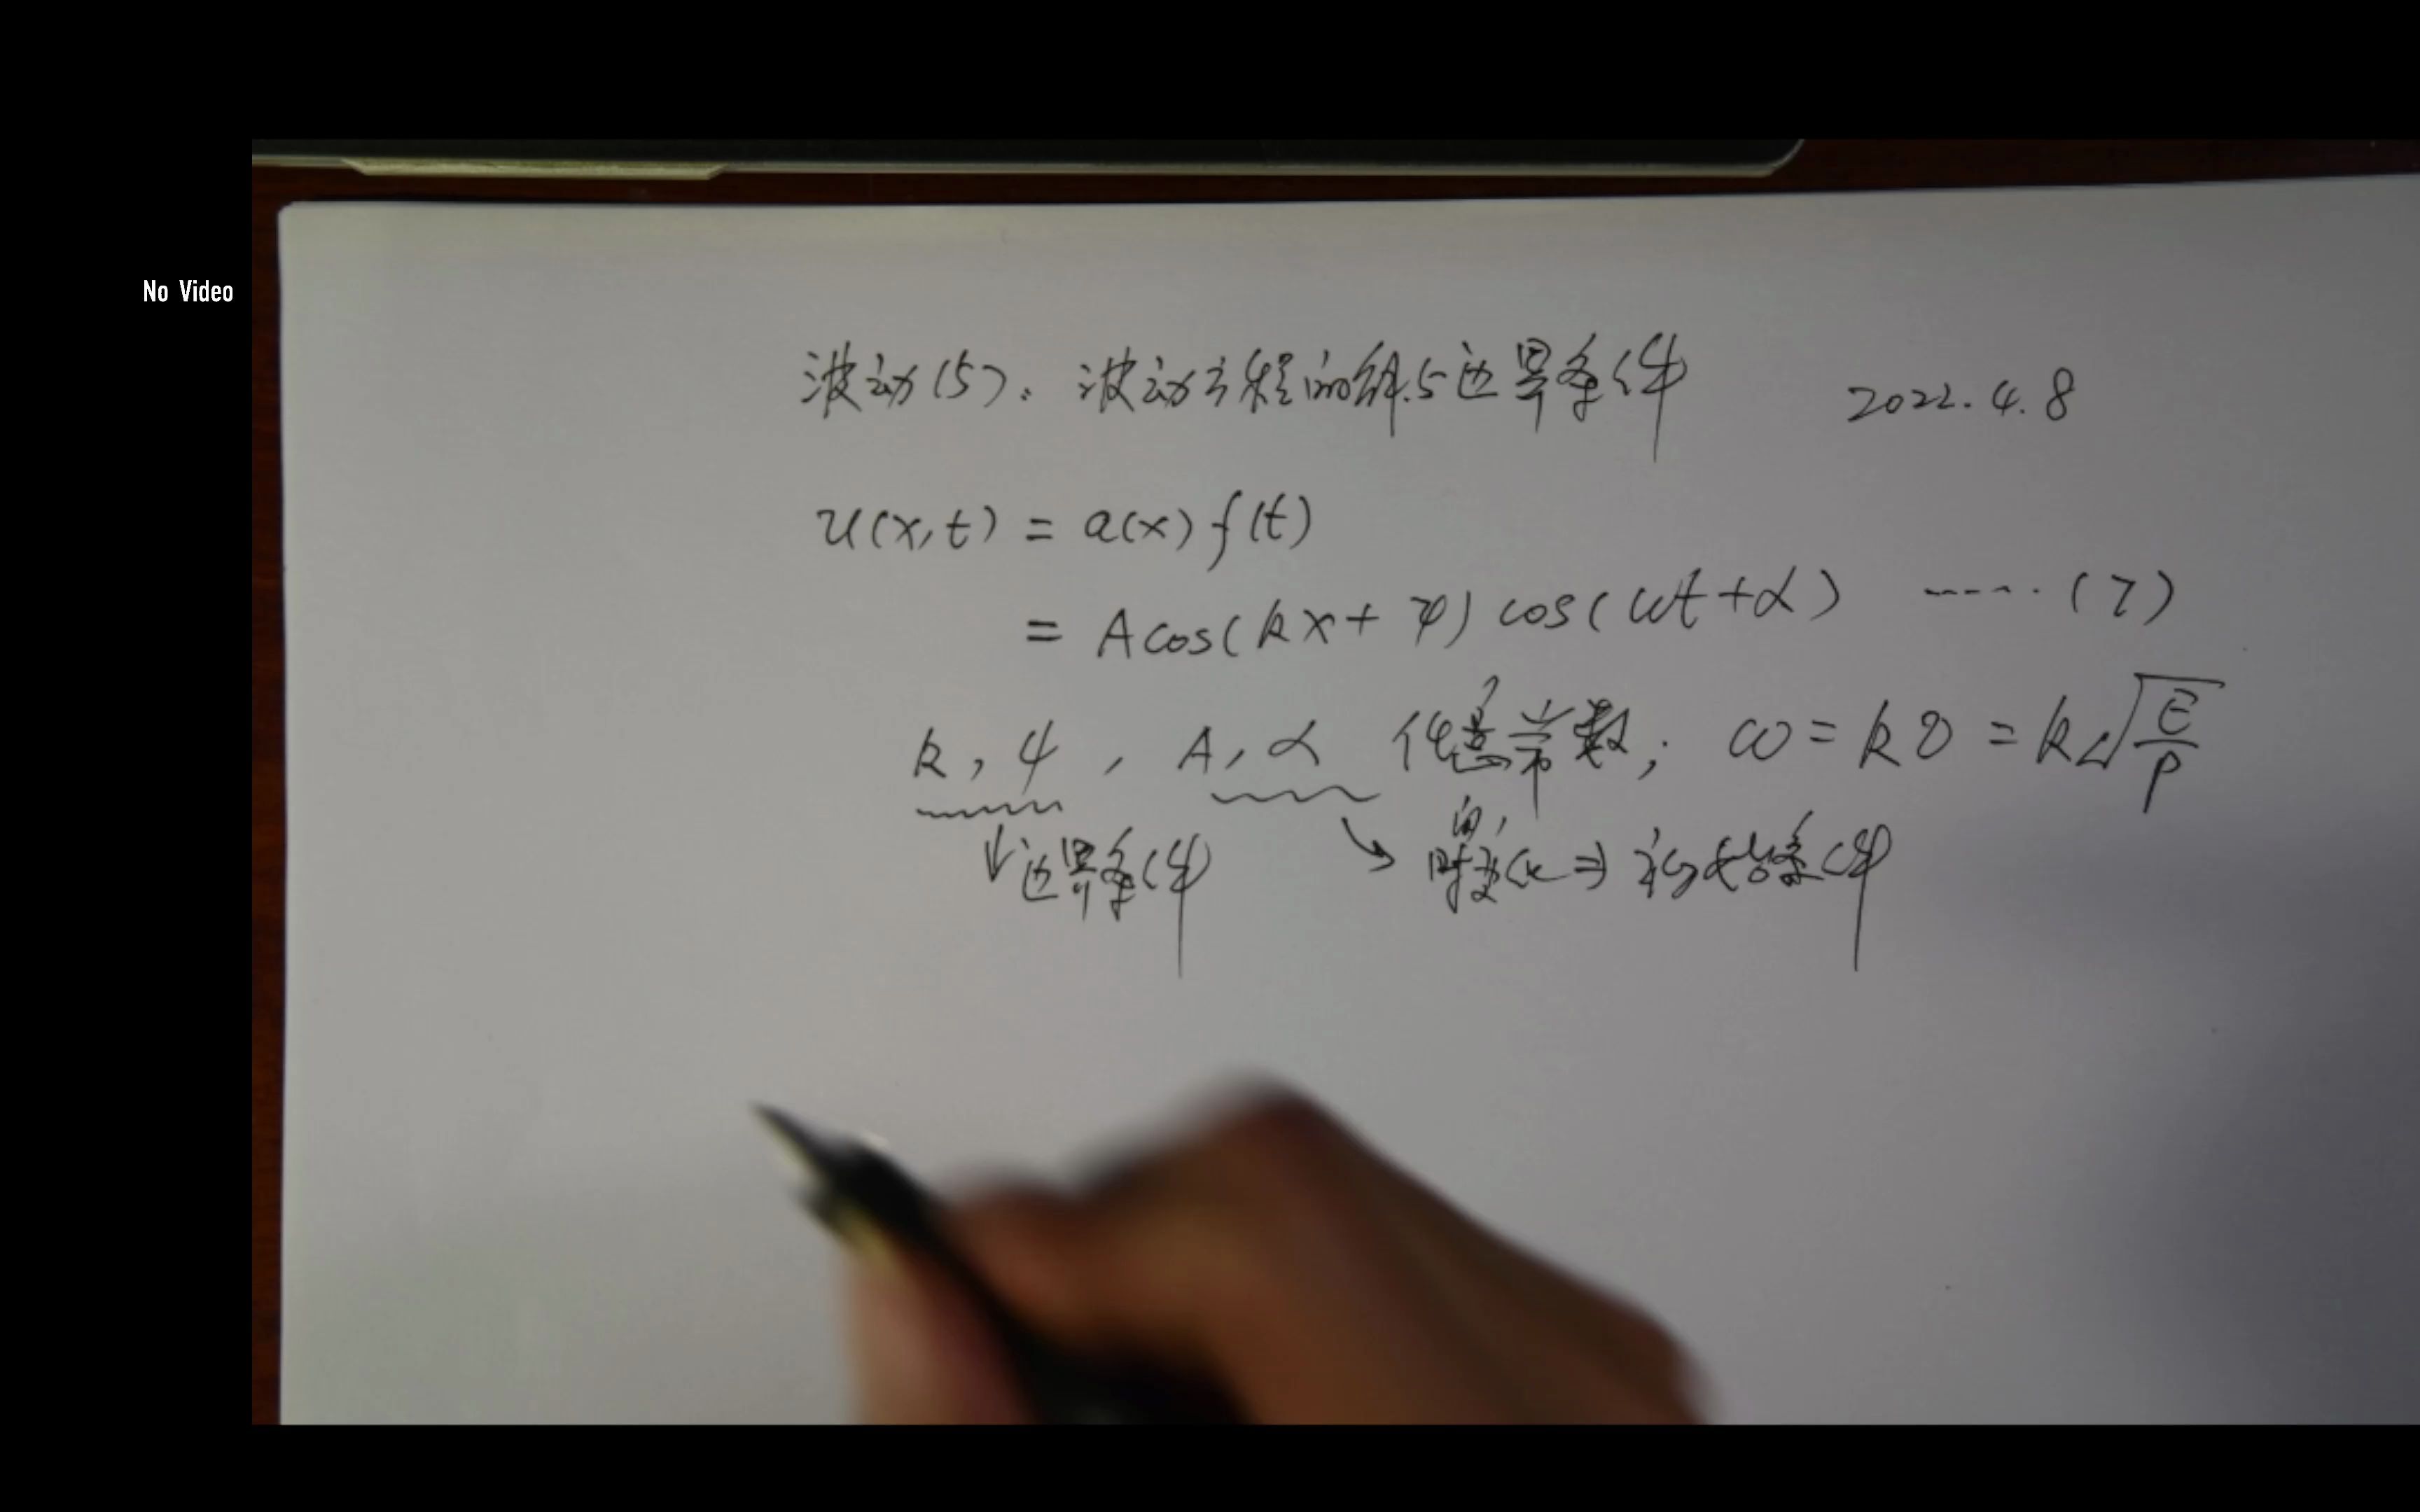 No Video
波动(5): 波动方程的解与边界条件 2022.4.8
u(x,t) = a(x) f(t)
= A cos(kx + ψ) cos(ωt + α) ----- (7)
k, ψ, A, α 任意常数; ω = kv = k√(E/ρ)
↓ 边界条件 ↘ 时变化 ⇒ 初始条件